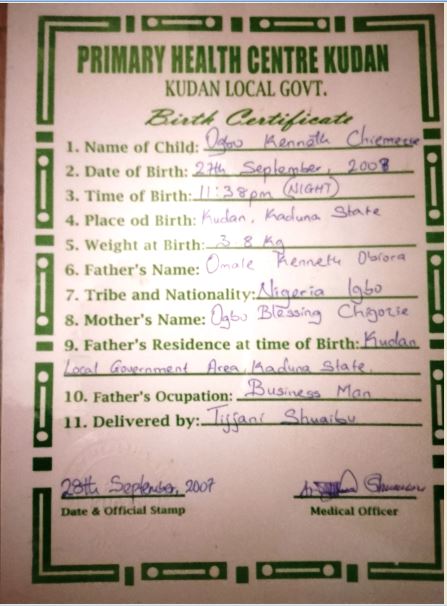 PRIMARY HEALTH CENTRE KUDAN
KUDAN LOCAL GOVT.
Birth Certificate
1. Name of Child: Ogbu Kenneth Chiemerie
2. Date of Birth: 27th September, 2008
3. Time of Birth: 11:38pm (NIGHT)
4. Place od Birth: Kudan, Kaduna State
5. Weight at Birth: 3.8 Kg
6. Father's Name: Omale Kenneth Obiora
7. Tribe and Nationality: Nigeria Igbo
8. Mother's Name: Ogbu Blessing Chigozie
9. Father's Residence at time of Birth: Kudan
Local Government Area, Kaduna State.
10. Father's Ocupation: Business Man
11. Delivered by: Tijjani Shuaibu
28th September, 2007
Date & Official Stamp
Medical Officer